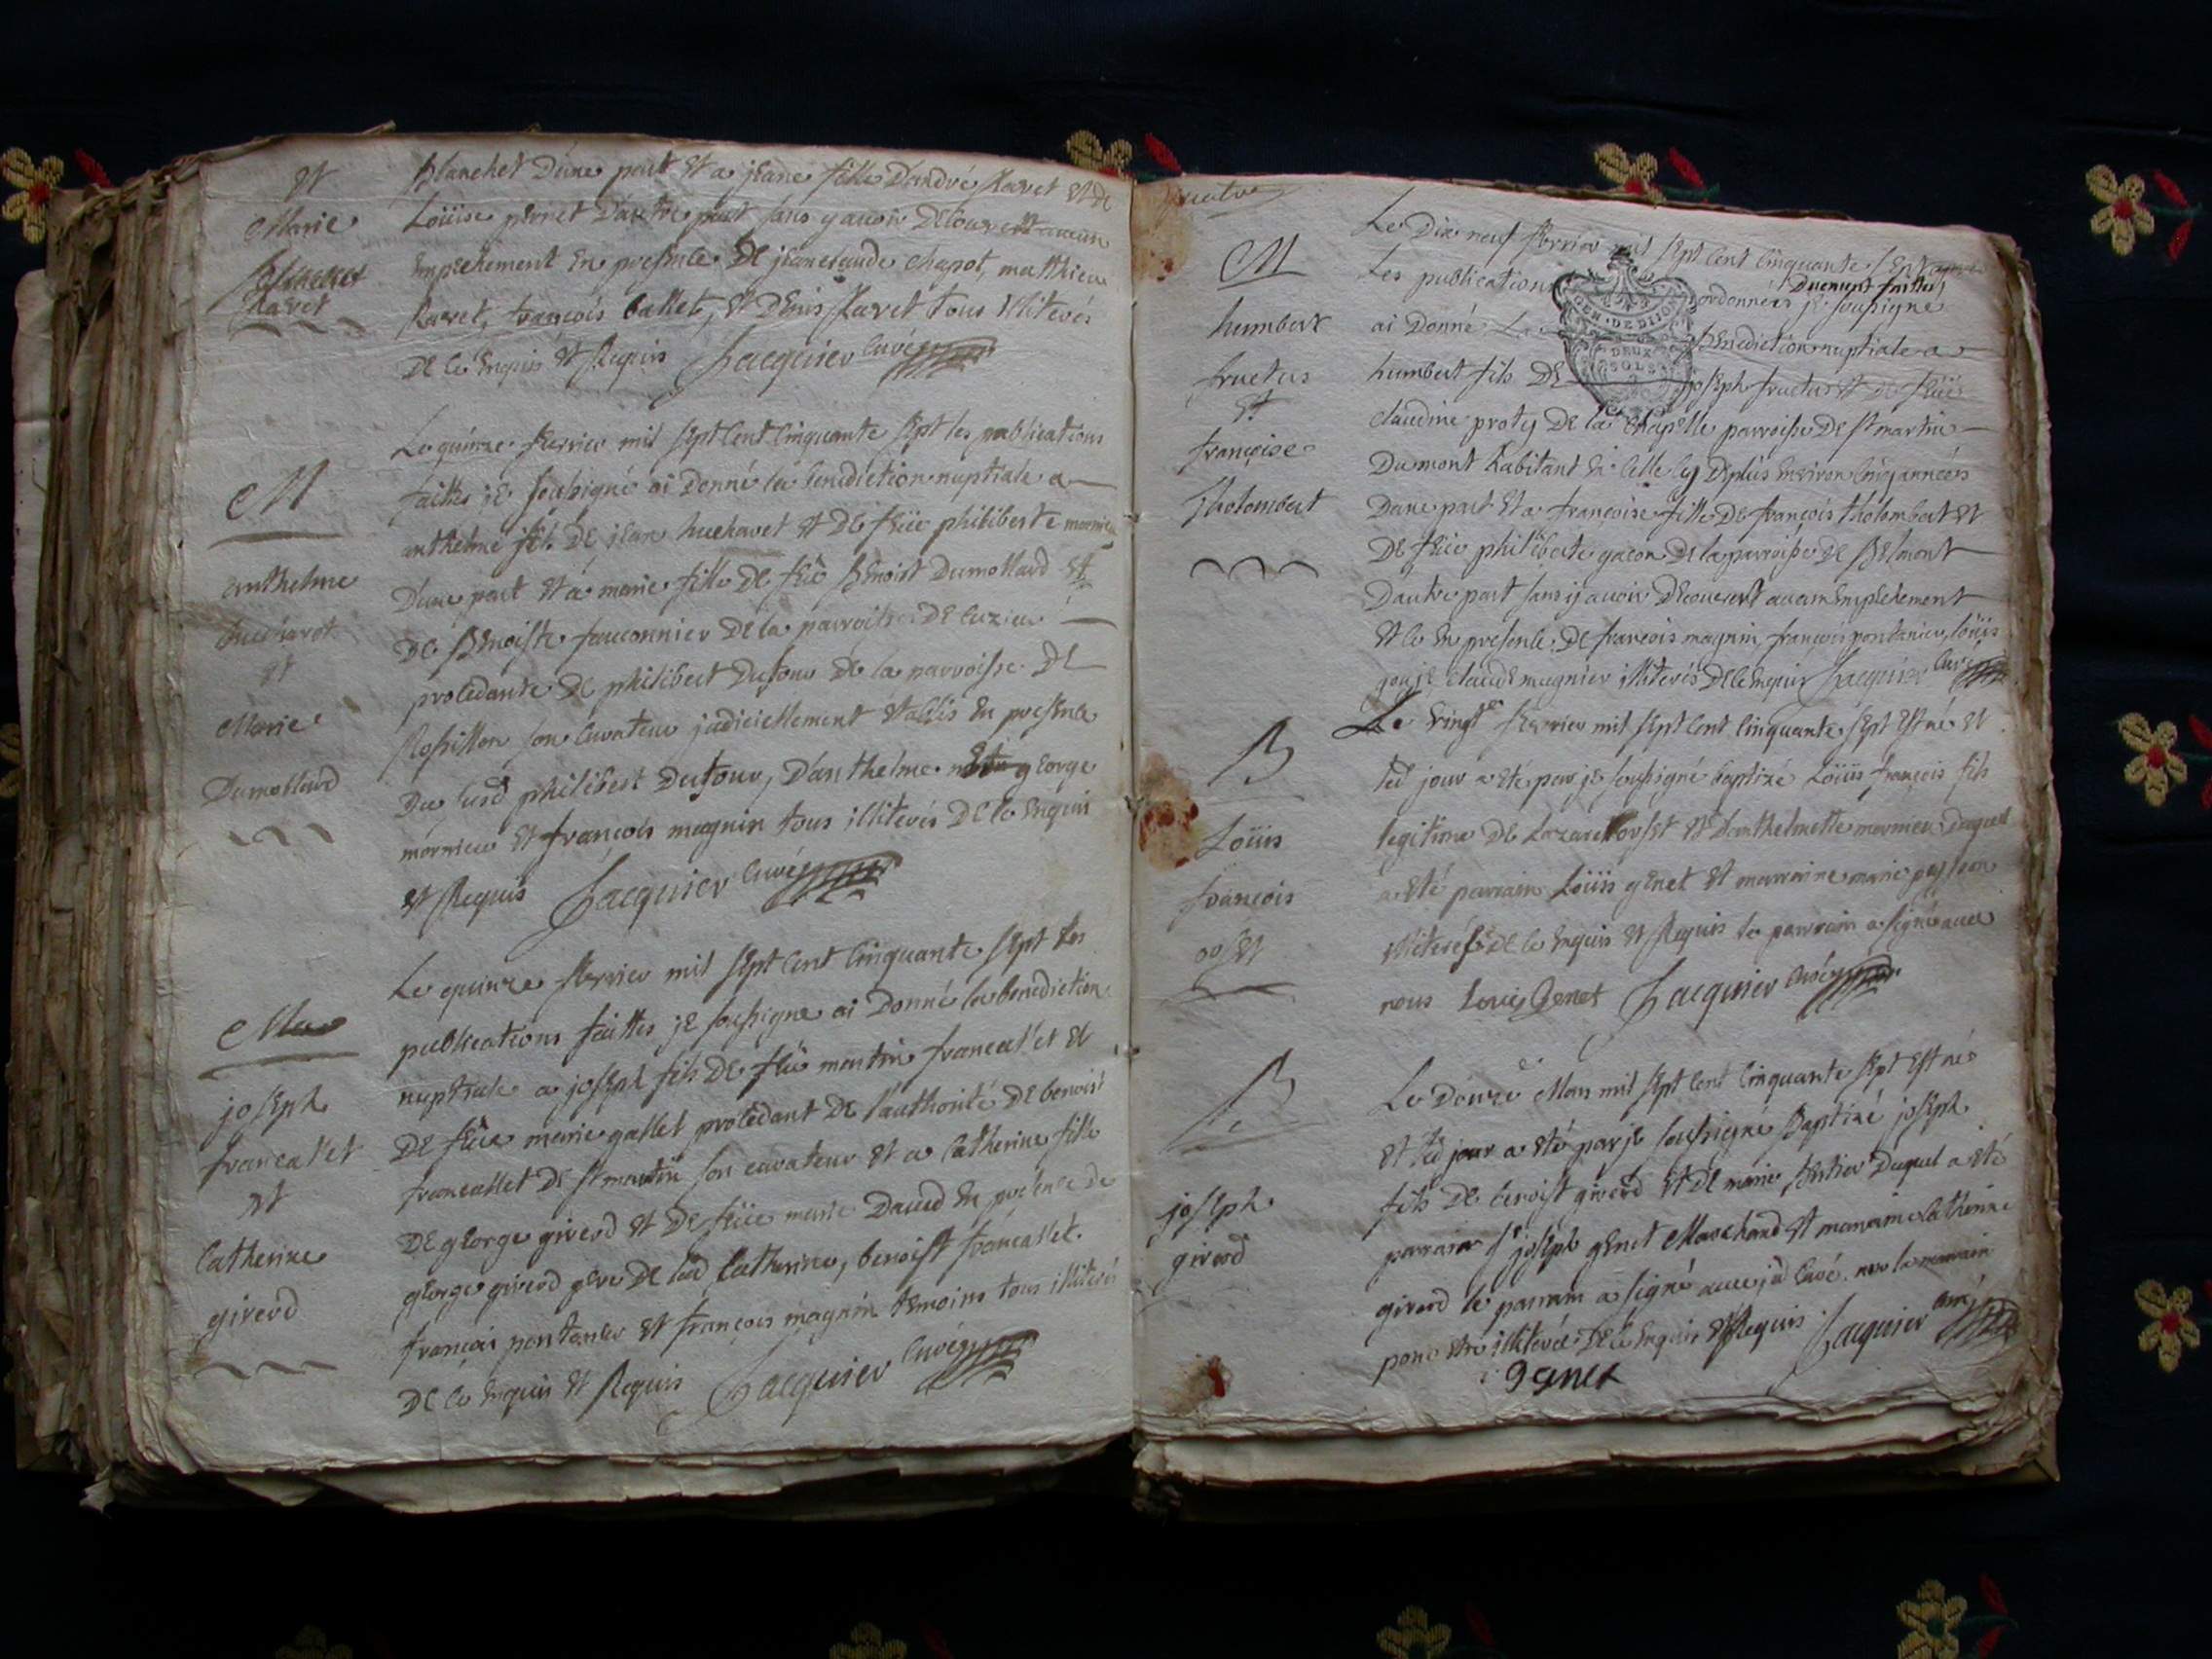 et
Marie
Ravet
Blanchet D'une part et a jeane fille D'andré Ravet et de
Loüise perret D'autre part sans y avoir Decouvert aucun
Empechement En presence De jeaneclaude chapot, matthieu
Ravet, françois ballet, et Denis Ravet tous illiterés
De ce Enquis et Requis Jacquier curé
M
anthelme
huchavet
et
Marie
Dumollard
Le quinze fevrier mil sept cent cinquante sept les publications
faittes je soussigné ai Donné la benediction nuptiale a
anthelme fils De jean huchavet et De feüe philiberte mornieu
D'une part et a marie fille De feü Benoist Dumollard et
De Benoiste fauconnier De la parroisse De Cuzieu
procedante De philibert Dufour De la parroisse De
Rossillon son curateur judiciellement etablis En presence
Du susd philibert Dufour, D'anthelme george
mornieu et françois magnin tous illiterés De ce Enquis
et Requis Jacquier curé
M
joseph
francallet
et
Catherine
giverd
Le quinze fevrier mil sept cent cinquante sept les
publications faittes je soussigné ai Donné la benediction
nuptiale a joseph fils De feü martin francallet et
De feüe marie gallet procedant De l'authorité De benoist
francallet De St martin son curateur et a Catherine fille
De george giverd et De feüe marie David En presence de
george giverd pere De lad Catherine, benoist francallet.
françois pontanier et françois magnin temoins tous illiterés
De ce Enquis et Requis Jacquier curé
fructus
M
humbert
fructus
et
françoise
tholombert
Le Dix neuf fevrier mil sept cent cinquante sept apres
Duement faittes
Les publications ordonnées je soussigné
ai Donné La Benediction nuptiale a
humbert fils De joseph fructus et de feüe
claudine proty De la chapelle parroisse De St martin
Dumont habitant En celle cy Depuis Environ cinq années
D'une part et a françoise fille De françois tholombert et
De feüe philiberte gacon De la parroisse De Belmont
D'autre part sans y avoir Decouvert aucun Empechement
et ce En presence De françois magnin, françois pontanier, loüis
gouje claude magnier illiterés De ce Enquis Jacquier curé
B
Loüis
françois
Le vingt fevrier mil sept cent cinquante sept est né et
led jour a eté par je soussigné baptizé Loüis françois fils
legitime De Lazare et D'anthelmette mornieu Duquel
a eté parrain Loüis genet et marraine marie peysson
illiterée De ce Enquis et Requis le parrain a signé avec
nous Louis Genet Jacquier curé
B
joseph
giverd
Le Douze Mars mil sept cent cinquante sept est né
et led jour a eté par je soussigné Baptizé joseph
fils De benoist giverd et De marie Duquel a eté
parrain Sr joseph genet Marchand et marraine Catherine
giverd le parrain a signé avec jed curé. non la marraine
pour etre illiterée De ce Enquis et Requis Jacquier curé
genet
GEN · DE DIJON
DEUX
SOLS